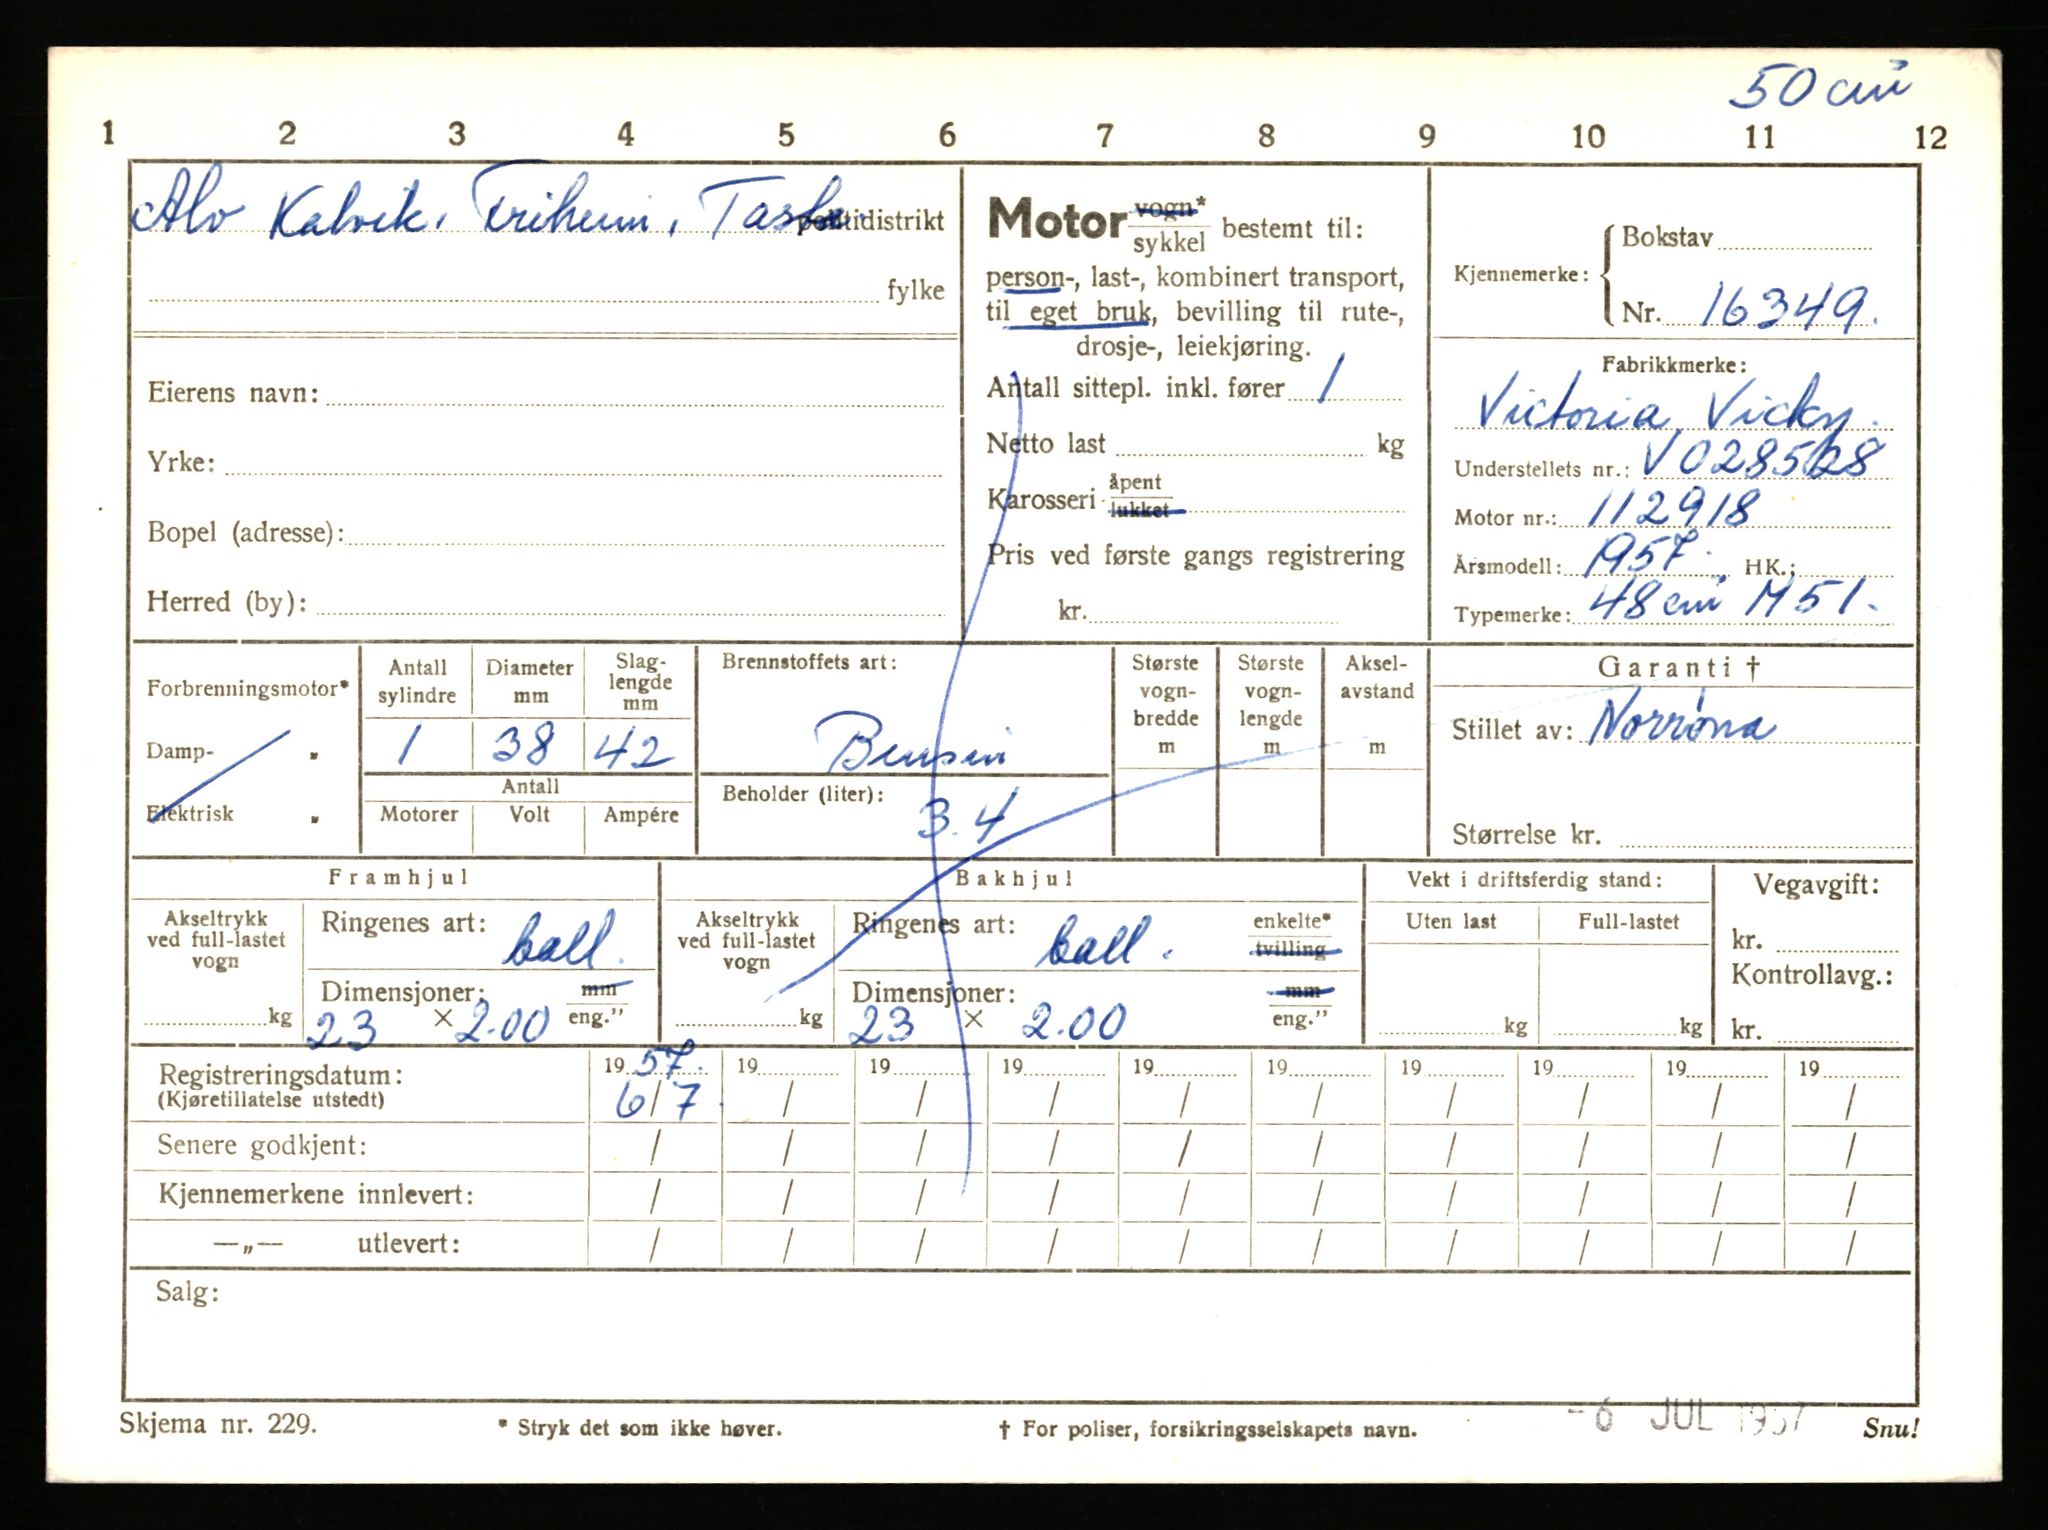 50 cm³
1 2 3 4 5 6 7 8 9 10 11 12
Alv Kalvik, Friheim, Tasta politidistrikt
fylke
Eierens navn:
Yrke:
Bopel (adresse):
Herred (by):
Motor vogn* sykkel bestemt til:
person-, last-, kombinert transport,
til eget bruk, bevilling til rute-,
drosje-, leiekjøring.
Antall sittepl. inkl. fører 1
Netto last kg
Karosseri åpent lukket
Pris ved første gangs registrering
kr.
Kjennemerke: Bokstav
Nr. 16349.
Fabrikkmerke:
Victoria Vicky.
Understellets nr.: V028528
Motor nr.: 112918
Årsmodell: 1957. HK.:
Typemerke: 48 cm³ M 51.
Forbrenningsmotor*
Damp- „
Elektrisk „
Antall sylindre Diameter mm Slaglengde mm
1 38 42
Antall
Motorer Volt Ampére
Brennstoffets art:
Bensin
Beholder (liter):
3.4
Største vognbredde m
Største vognlengde m
Akselavstand m
Garanti †
Stillet av: Norrøna
Størrelse kr.
Framhjul
Akseltrykk ved full-lastet vogn
kg
Ringenes art: ball.
Dimensjoner: mm
23 × 2.00 eng."
Bakhjul
Akseltrykk ved full-lastet vogn
kg
Ringenes art: ball. enkelte* tvilling
Dimensjoner: mm
23 × 2.00 eng."
Vekt i driftsferdig stand:
Uten last Full-lastet
kg kg
Vegavgift:
kr.
Kontrollavg.:
kr.
Registreringsdatum: 19 57. 19 19 19 19 19 19 19 19 19
(Kjøretillatelse utstedt) 6/7. / / / / / / / / /
Senere godkjent: / / / / / / / / / /
Kjennemerkene innlevert: / / / / / / / / / /
—„— utlevert: / / / / / / / / / /
Salg:
-6 JUL 1957
Skjema nr. 229. * Stryk det som ikke høver. † For poliser, forsikringsselskapets navn. Snu!